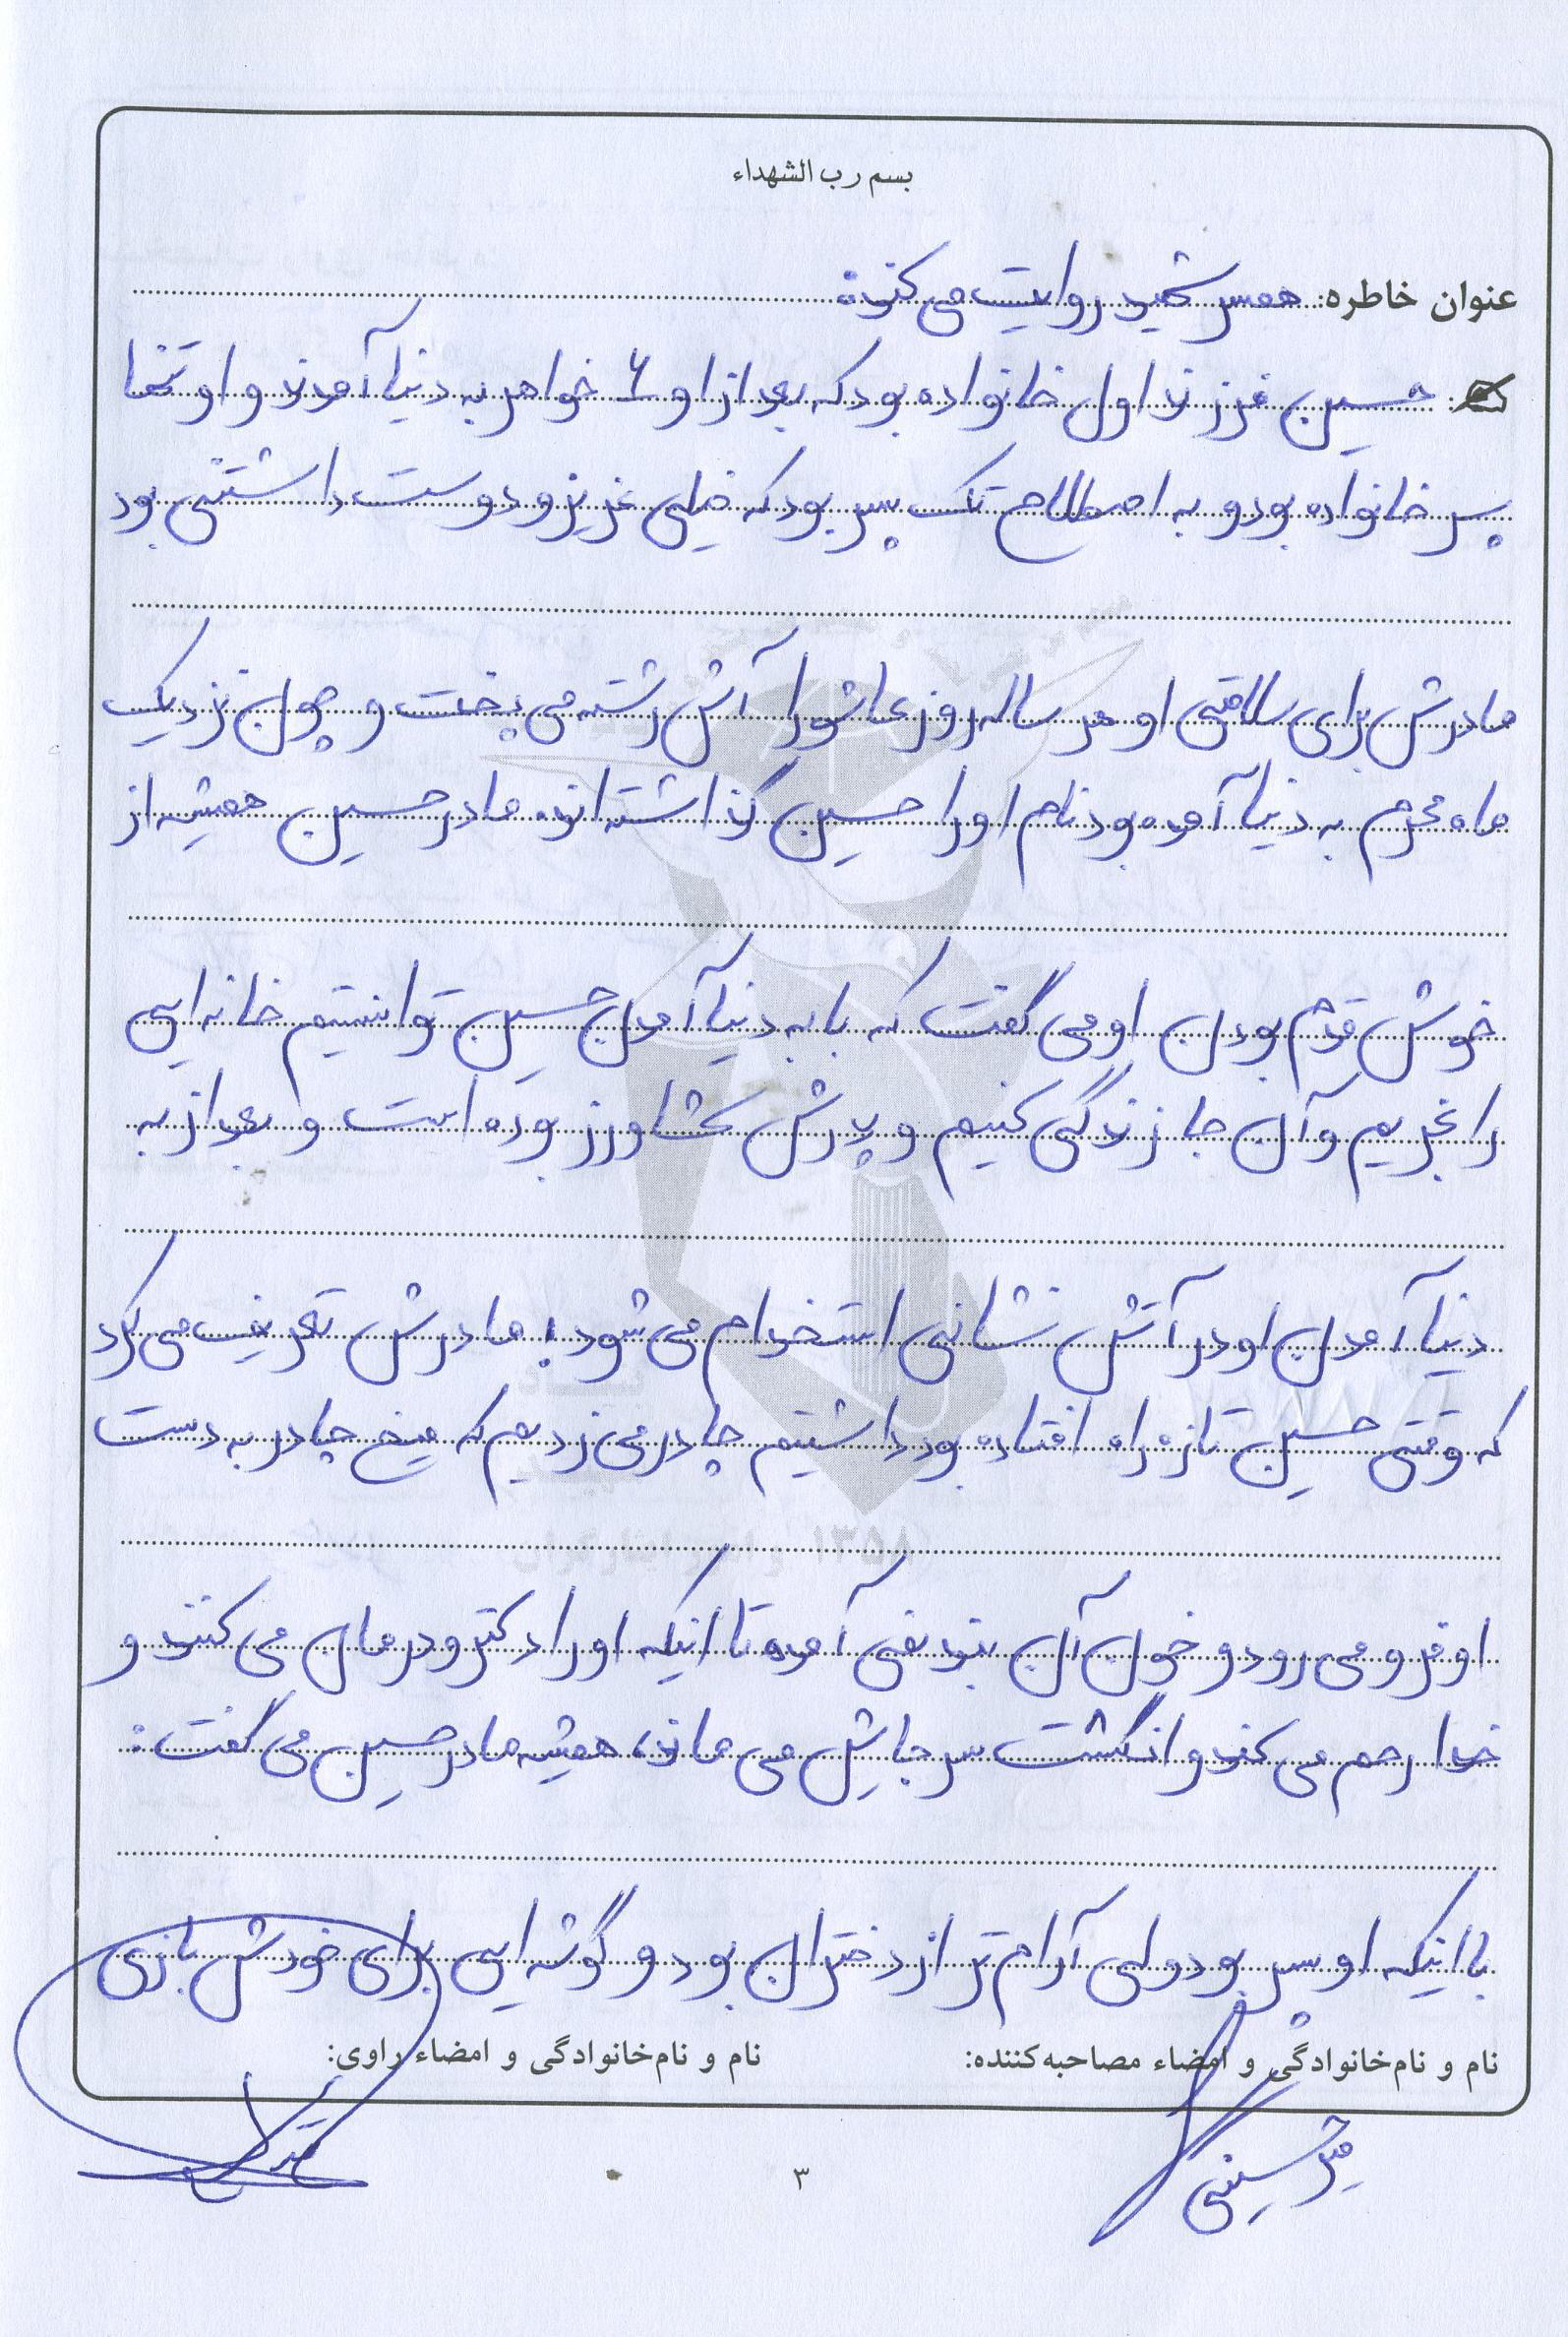 بسم رب الشهداء
عنوان خاطره: همسر شهید روایت می کند:
حسین فرزند اول خانواده بود که بعد از او ۶ خواهر به دنیا آمدند و او تنها
پسر خانواده بود و به اصطلاح تک پسر بود که خیلی عزیز و دوست داشتنی بود
مادرش برای سلامتی او هر ساله روز عاشورا آش رشته می پخت و چون نزدیک
ماه محرم به دنیا آمده بود نام او را حسین گذاشته اند. مادر حسین همیشه از
خوش قدم بودن او می گفت که با به دنیا آمدن حسین توانستیم خانه ایی
را بخریم و آن جا زندگی کنیم و پدرش کشاورز بوده است و بعد از به
دنیا آمدن او در آتش نشانی استخدام می شود. مادرش تعریف می کرد
که وقتی حسین تازه راه افتاده بود داشتیم چادر می زدیم که میخ چادر به دست
او فرو می رود و خون آن بند نمی آمده تا اینکه او را دکتر و درمان می کنند و
خدا رحم می کند و انگشت سر جایش می ماند، همیشه مادر حسین می گفت:
با اینکه او پسر بود ولی آرام تر از دختران بود و گوشه ایی برای خودش بازی
نام و نام‌خانوادگی و امضاء مصاحبه‌کننده: نام و نام‌خانوادگی و امضاء راوی:
میرحسینی
۳
۱۳۵۸